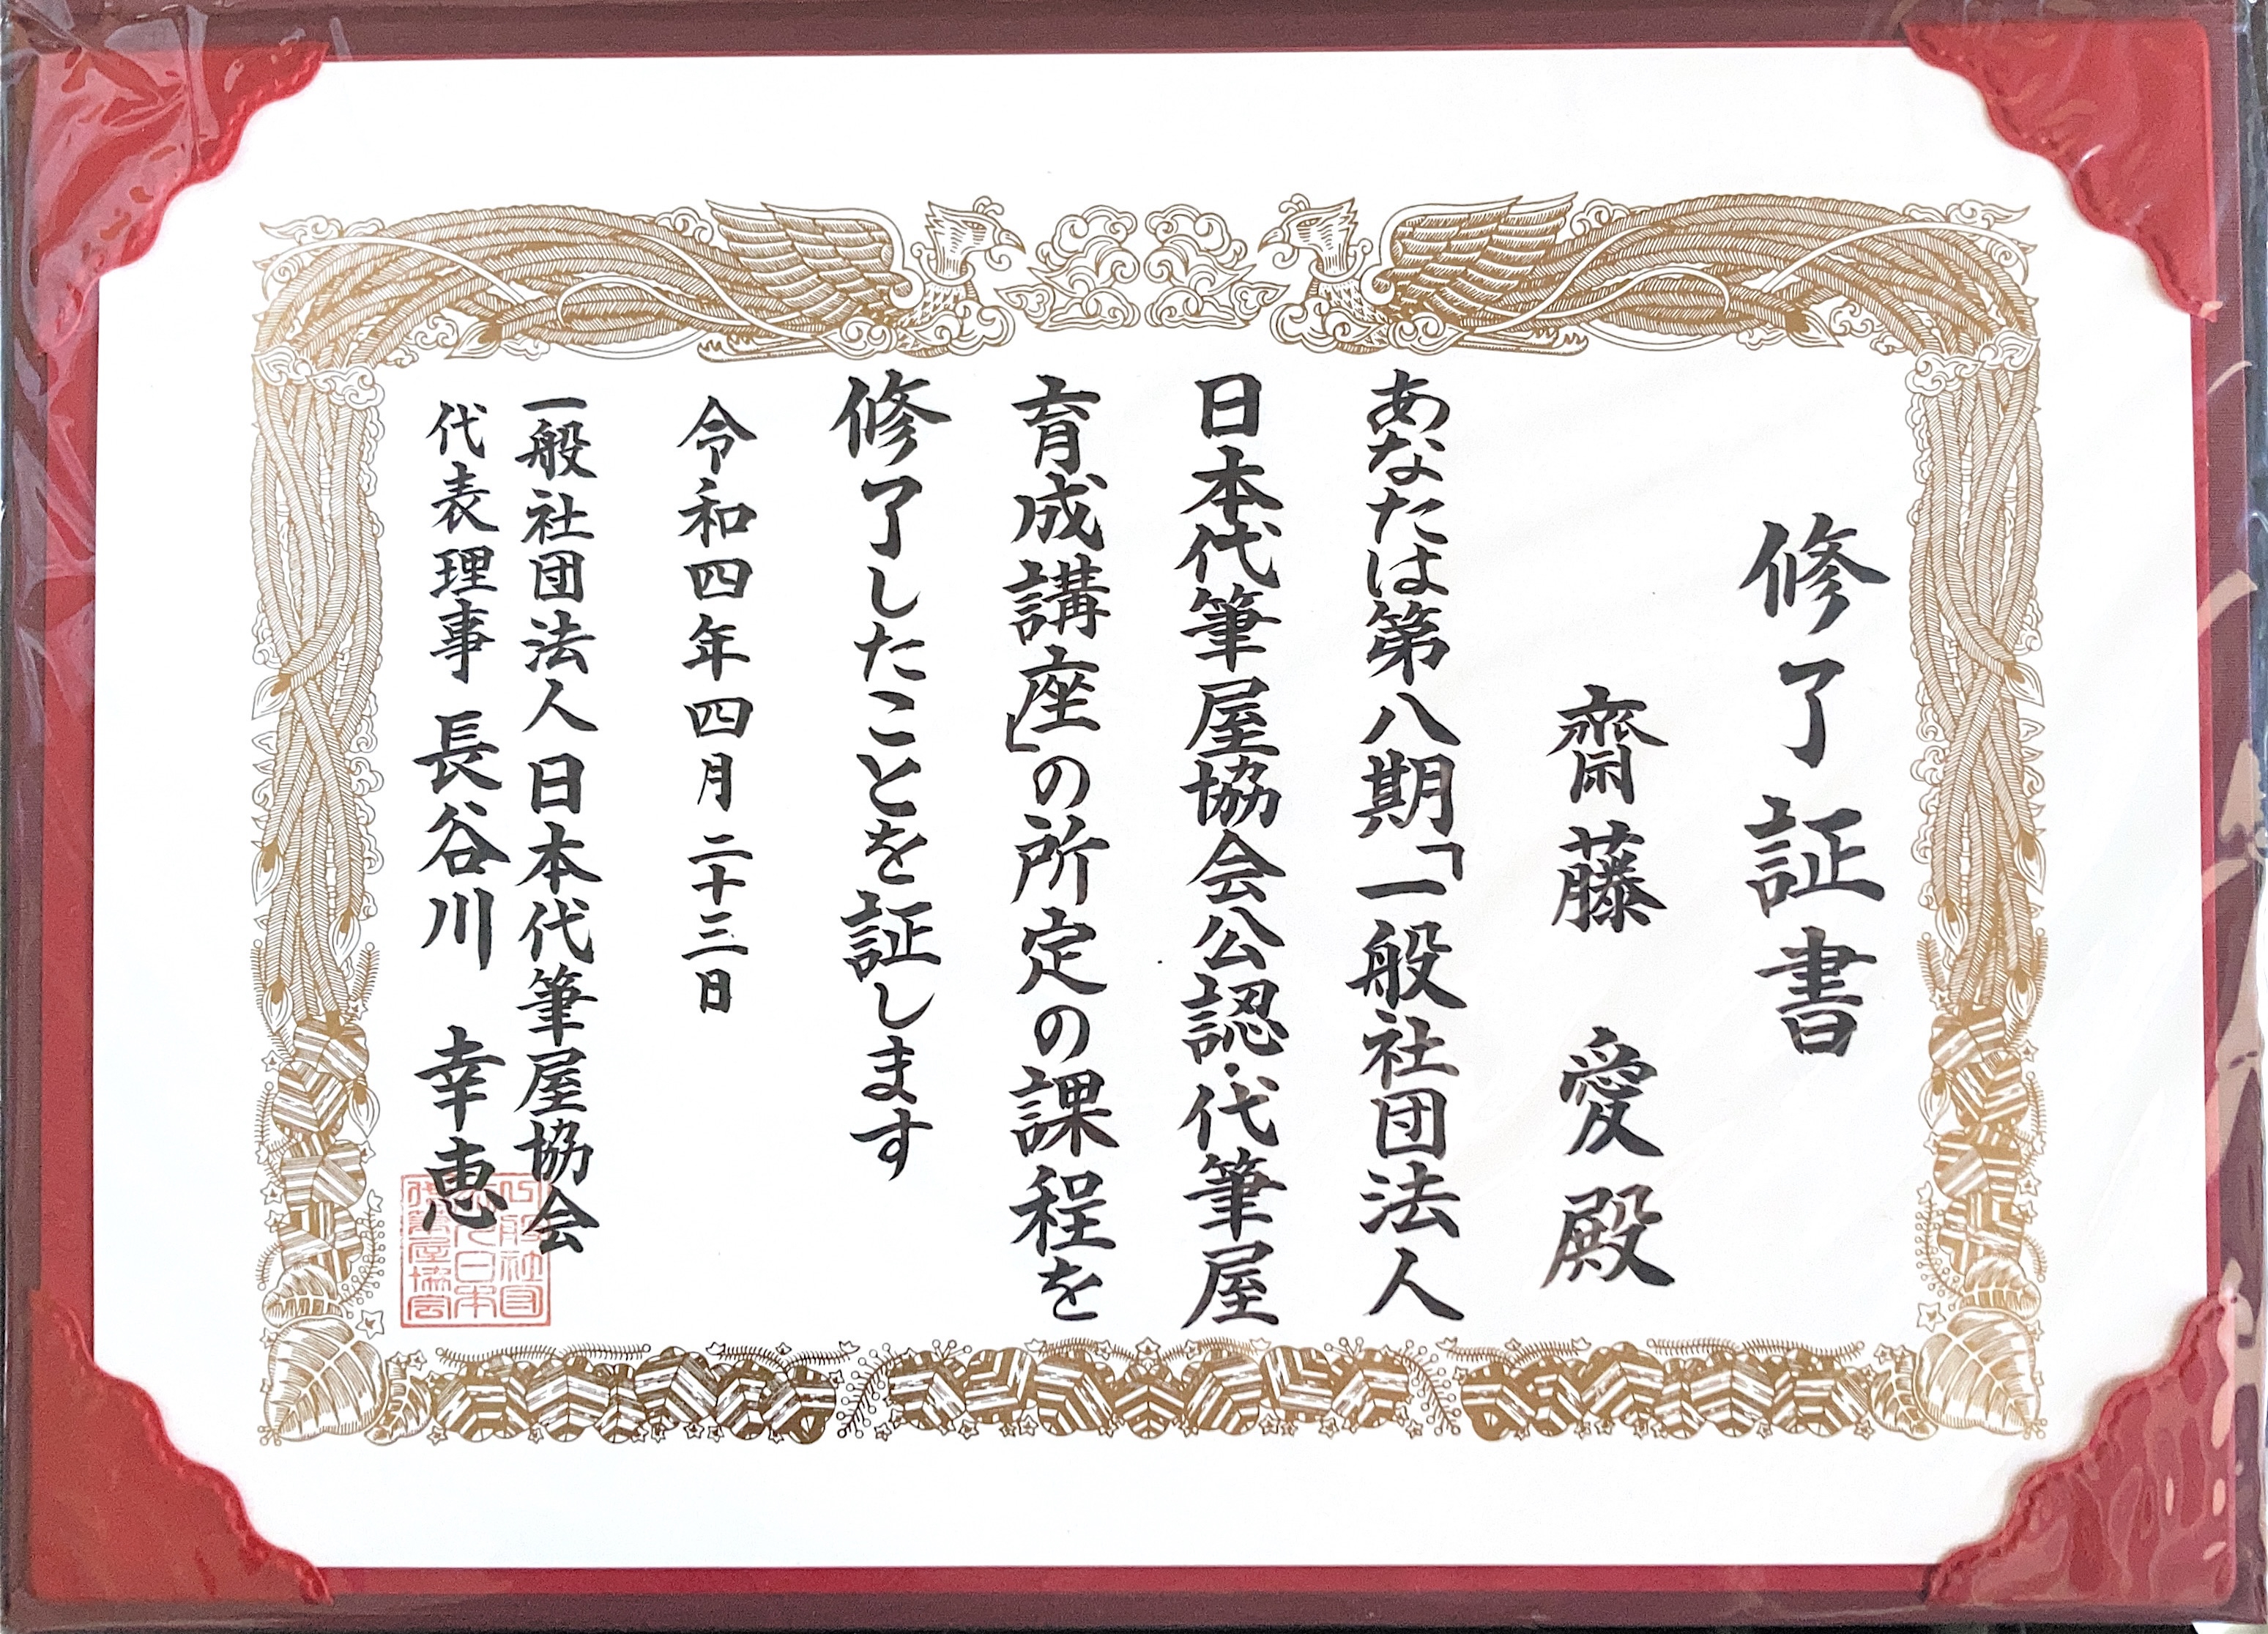 修了証書
齋藤 愛 殿
あなたは第八期「一般社団法人
日本代筆屋協会公認・代筆屋
育成講座」の所定の課程を
修了したことを証します
令和四年四月二十三日
一般社団法人日本代筆屋協会
代表理事 長谷川 幸恵